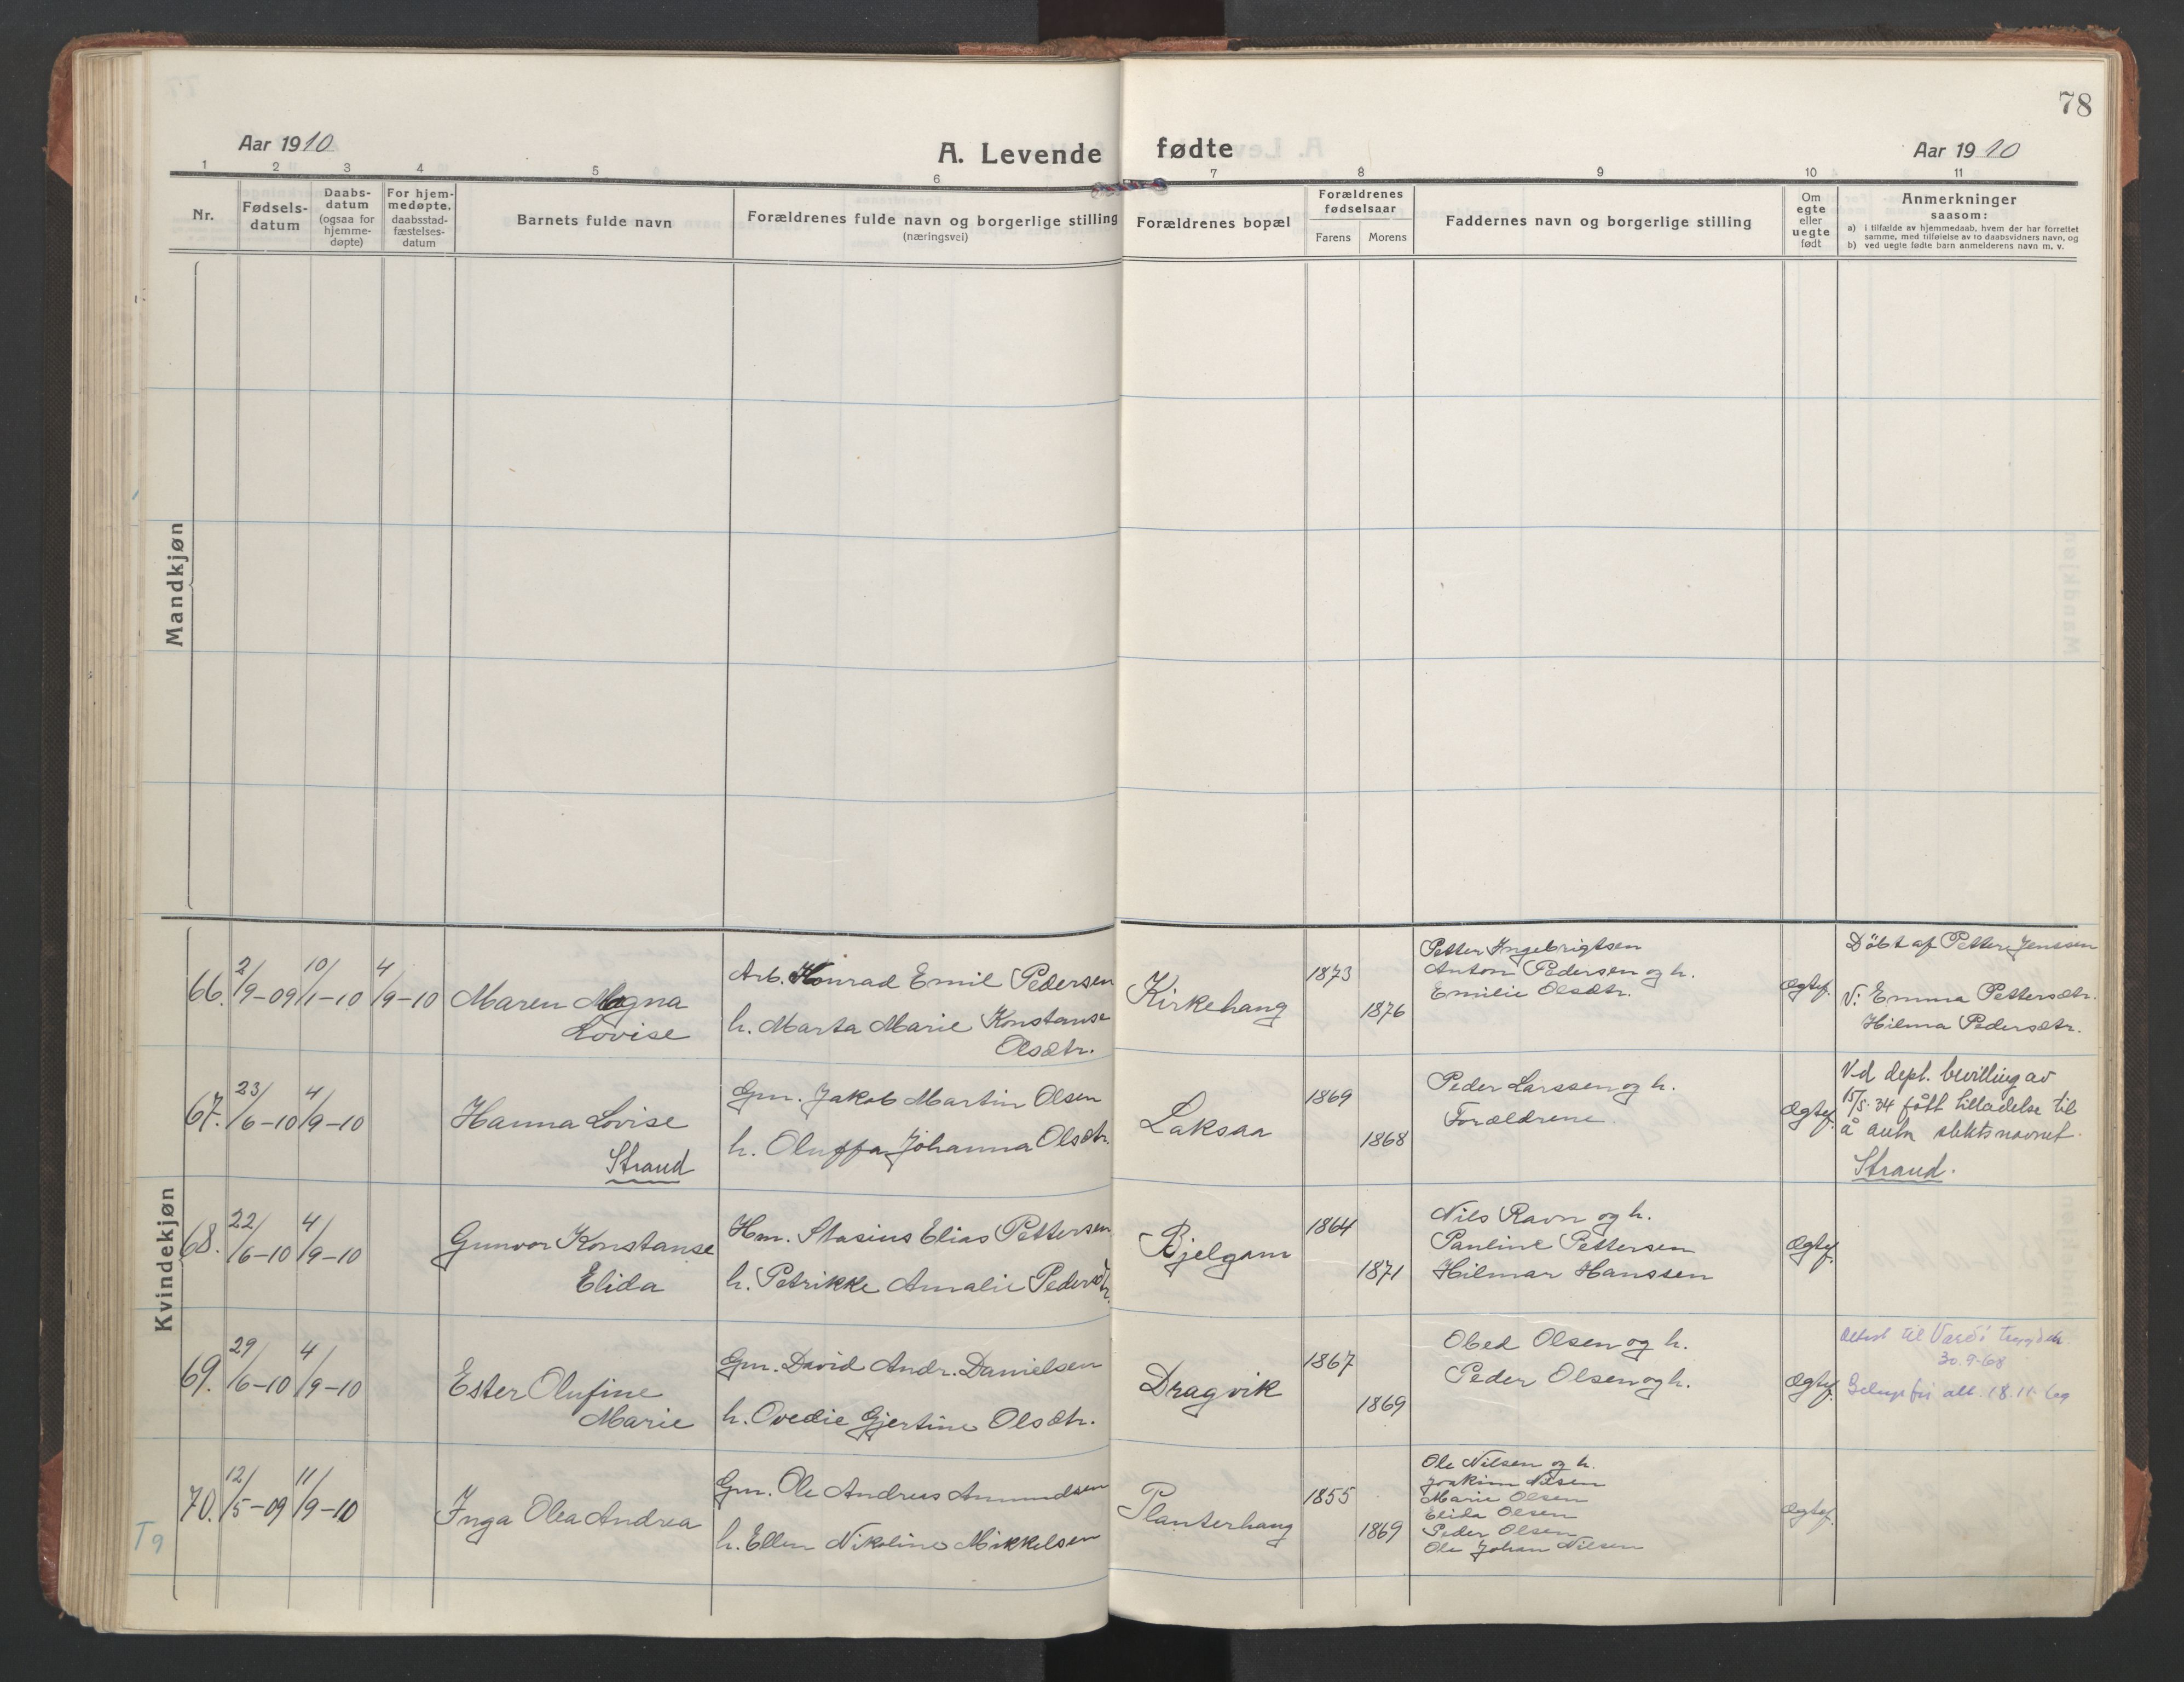 78
Aar 1910
A. Levende fødte
Aar 1910
1 2 3 4 5 6 7 8 9 10 11
Nr.
Fødsels-
datum
Daabs-
datum
(ogsaa for
hjemme-
døpte)
For hjem-
medøpte,
daabsstad-
fæstelses-
datum
Barnets fulde navn
Forældrenes fulde navn og borgerlige stilling
(næringsvei)
Forældrenes bopæl
Forældrenes
fødselsaar
Farens Morens
Faddernes navn og borgerlige stilling
Om
egte
eller
uegte
født
Anmerkninger
saasom:
a) i tilfælde av hjemmedaab, hvem der har forrettet
samme, med tilføielse av to daabsvidners navn, og
b) ved uegte fødte barn anmelderens navn m. v.
Mandkjøn
Kvindekjøn
66. 2/9-09 10/1-10 4/9-10
Maren Magna
Lovise
Arb. Konrad Emil Pedersen
h. Marta Marie Konstanse
Olsdtr.
Kirkehaug
1873
1876
Petter Ingebrigtsen
Anton Pedersen og h.
Emilie Olsdtr.
Ægtef.
Döbt af Petter Jenssen
V: Emma Pettersdtr.
Hilma Pedersdtr.
67. 23/6-10 4/9-10
Hanna Lovise
Strand
Gm. Jakob Martin Olsen
h. Oluffa Johanna Olsdtr.
Laksaa
1869
1868
Peder Larssen og h.
Forældrene.
Ægtef.
Ved dept. bevilling av
15/5-34 fått tilladelse til
å anta slektsnavnet
Strand.
68. 22/6-10 4/9-10
Gunvor Konstanse
Elida
Hm. Stasius Elias Pettersen
h. Petrikke Amalie Pedersdtr.
Bjelgam
1864
1871
Nils Ravn og h.
Pauline Pettersen
Hilmar Hanssen
Ægtef.
69. 29/6-10 4/9-10
Ester Olufine
Marie
Gm. David Andr. Danielsen
h. Ovedie Gjertine Olsdtr.
Dragvik
1867
1869
Obed Olsen og h.
Peder Olsen og h.
Ægtef.
Attest til
30.9-68
att. 18.11-69
70. 12/5-09 11/9-10
Inga Olea Andrea
Gm. Ole Andreas Amundsen
h. Ellen Nikoline Mikkelsen
Planterhaug
1855
1869
Ole Nilsen og h.
Joakim Nilsen
Marie Olsen
Elida Olsen
Peder Olsen
Ole Johan Nilsen
Ægtef.
T9